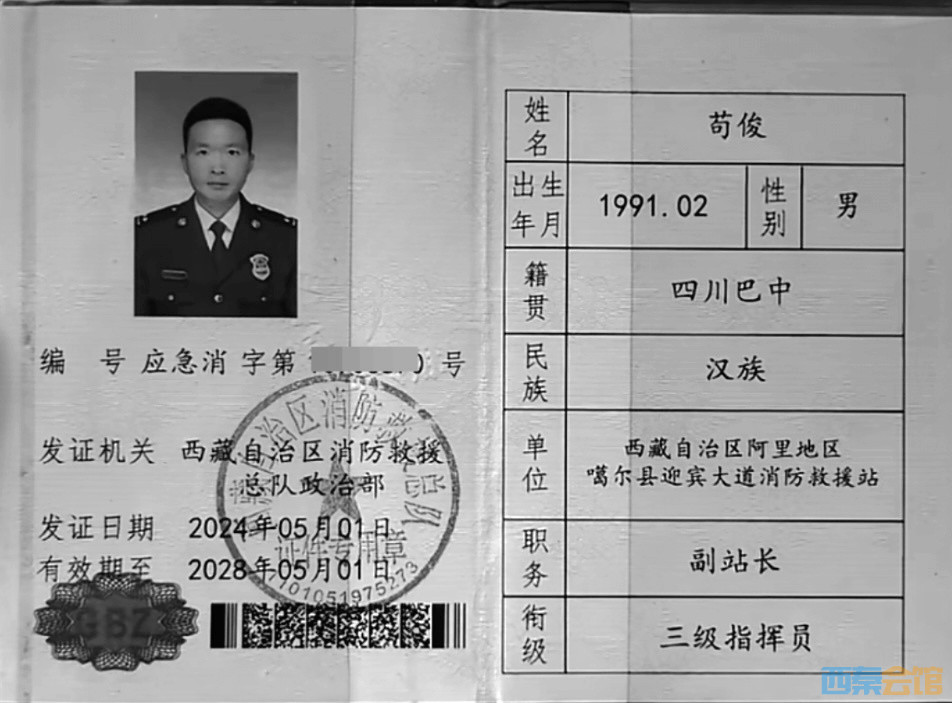 编 号 应急消 字第 号
发证机关 西藏自治区消防救援
总队政治部
发证日期 2024年05月01日
有效期至 2028年05月01日
证件专用章
GBZ
姓名 苟俊
出生年月 1991.02 性别 男
籍贯 四川巴中
民族 汉族
单位 西藏自治区阿里地区
噶尔县迎宾大道消防救援站
职务 副站长
衔级 三级指挥员
西秦会馆